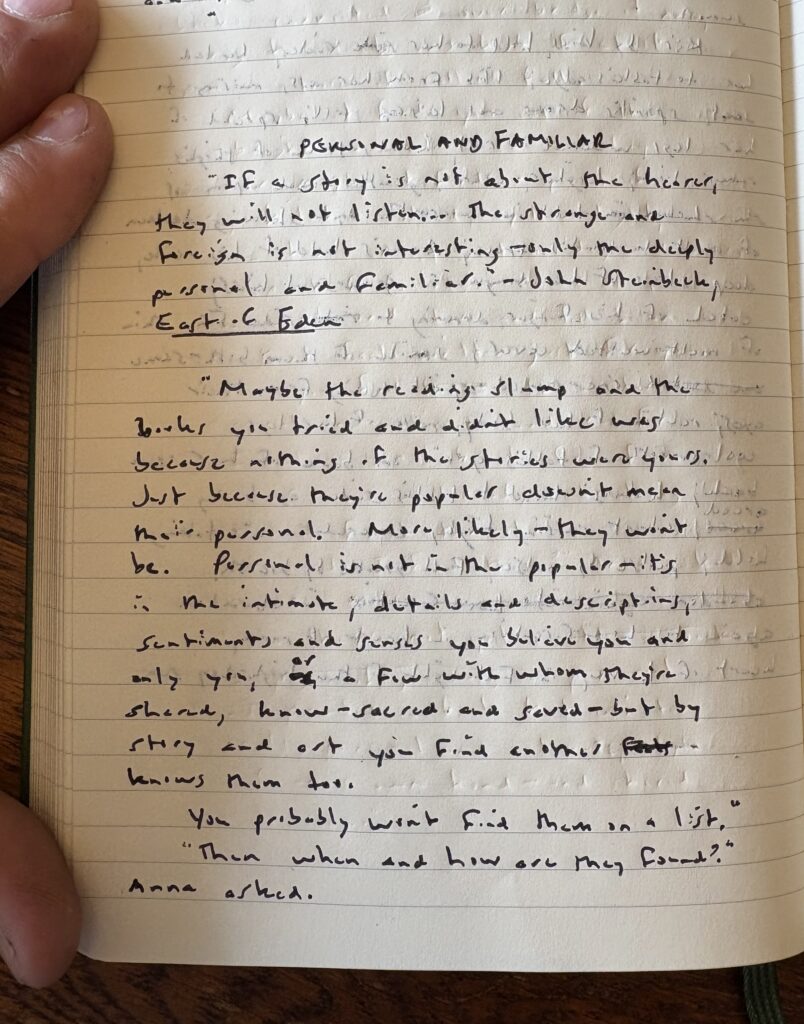 PERSONAL AND FAMILIAR
"If a story is not about the hearer,
they will not listen... The strange and
foreign is not interesting—only the deeply
personal and familiar." - John Steinbeck,
East of Eden
"Maybe the reading slump and the
books you tried and didn't like was
because nothing of the stories were yours.
Just because they're popular doesn't mean
their personal. More likely - they won't
be. Personal is not in the popular - it's
in the intimate, details and descriptions,
sentiments and senses you believe you and
only you, or a few with whom they're
shared, know - sacred and saved - but by
story and art you find another
knows them too.
You probably won't find them on a list."
"Then when and how are they found?"
Anna asked.